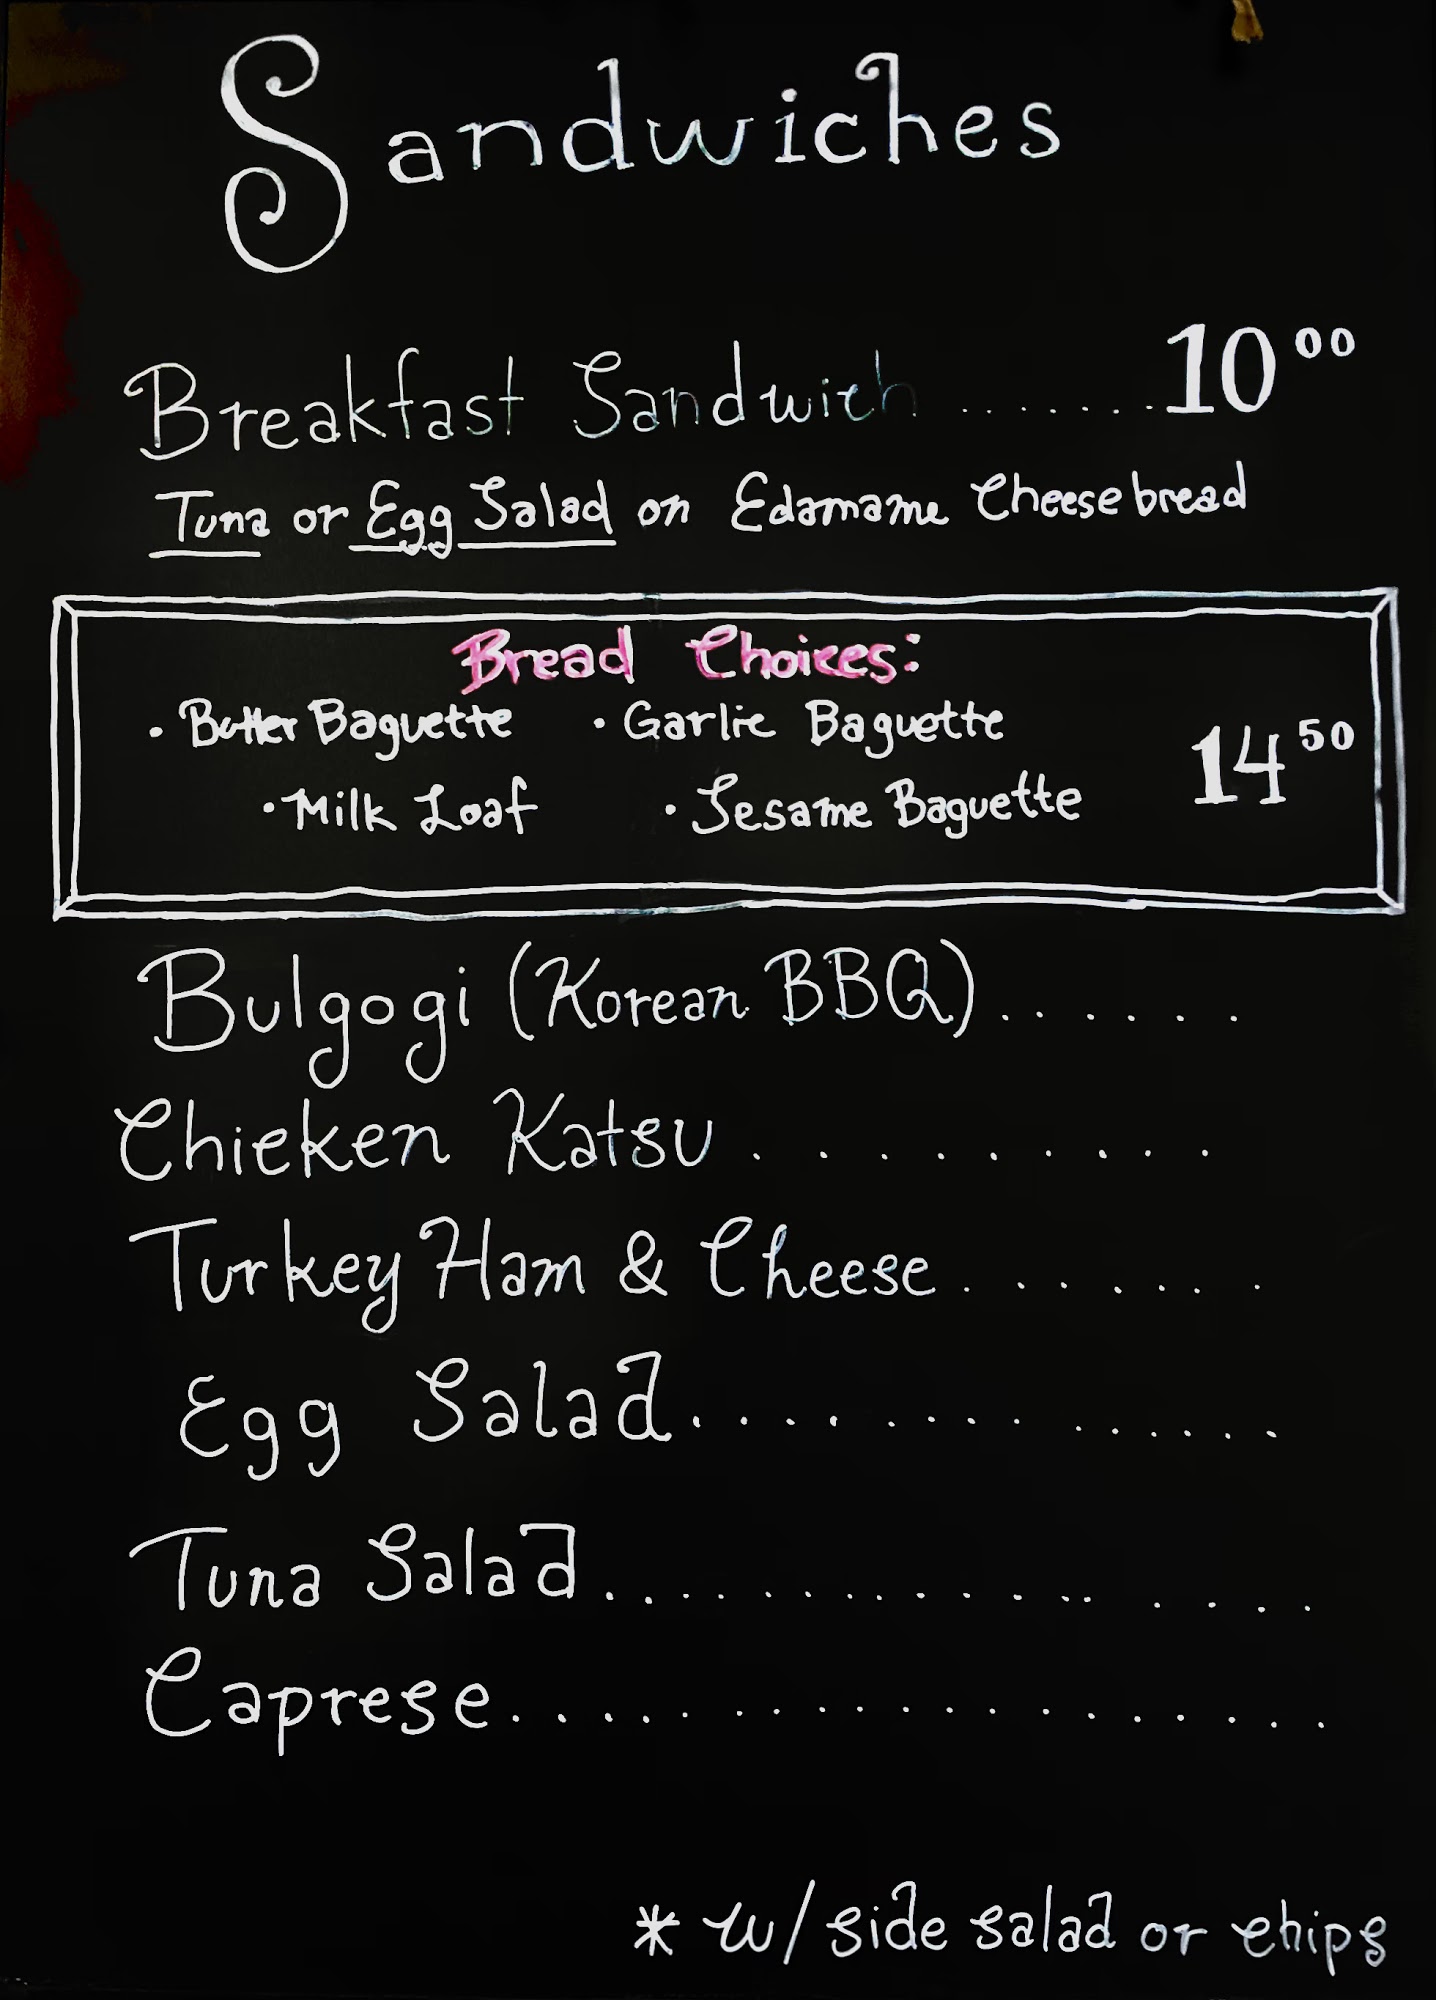 Sandwiches
Breakfast Sandwich ....... 10 00
Tuna or Egg Salad on Edamame Cheese bread
Bread Choices:
• Butter Baguette • Garlic Baguette
14 50
• Milk Loaf • Sesame Baguette
Bulgogi (Korean BBQ) ......
Chicken Katsu .........
Turkey Ham & Cheese .......
Egg Salad ..............
Tuna Salad ..................
Caprese ....................
* w/ side salad or chips